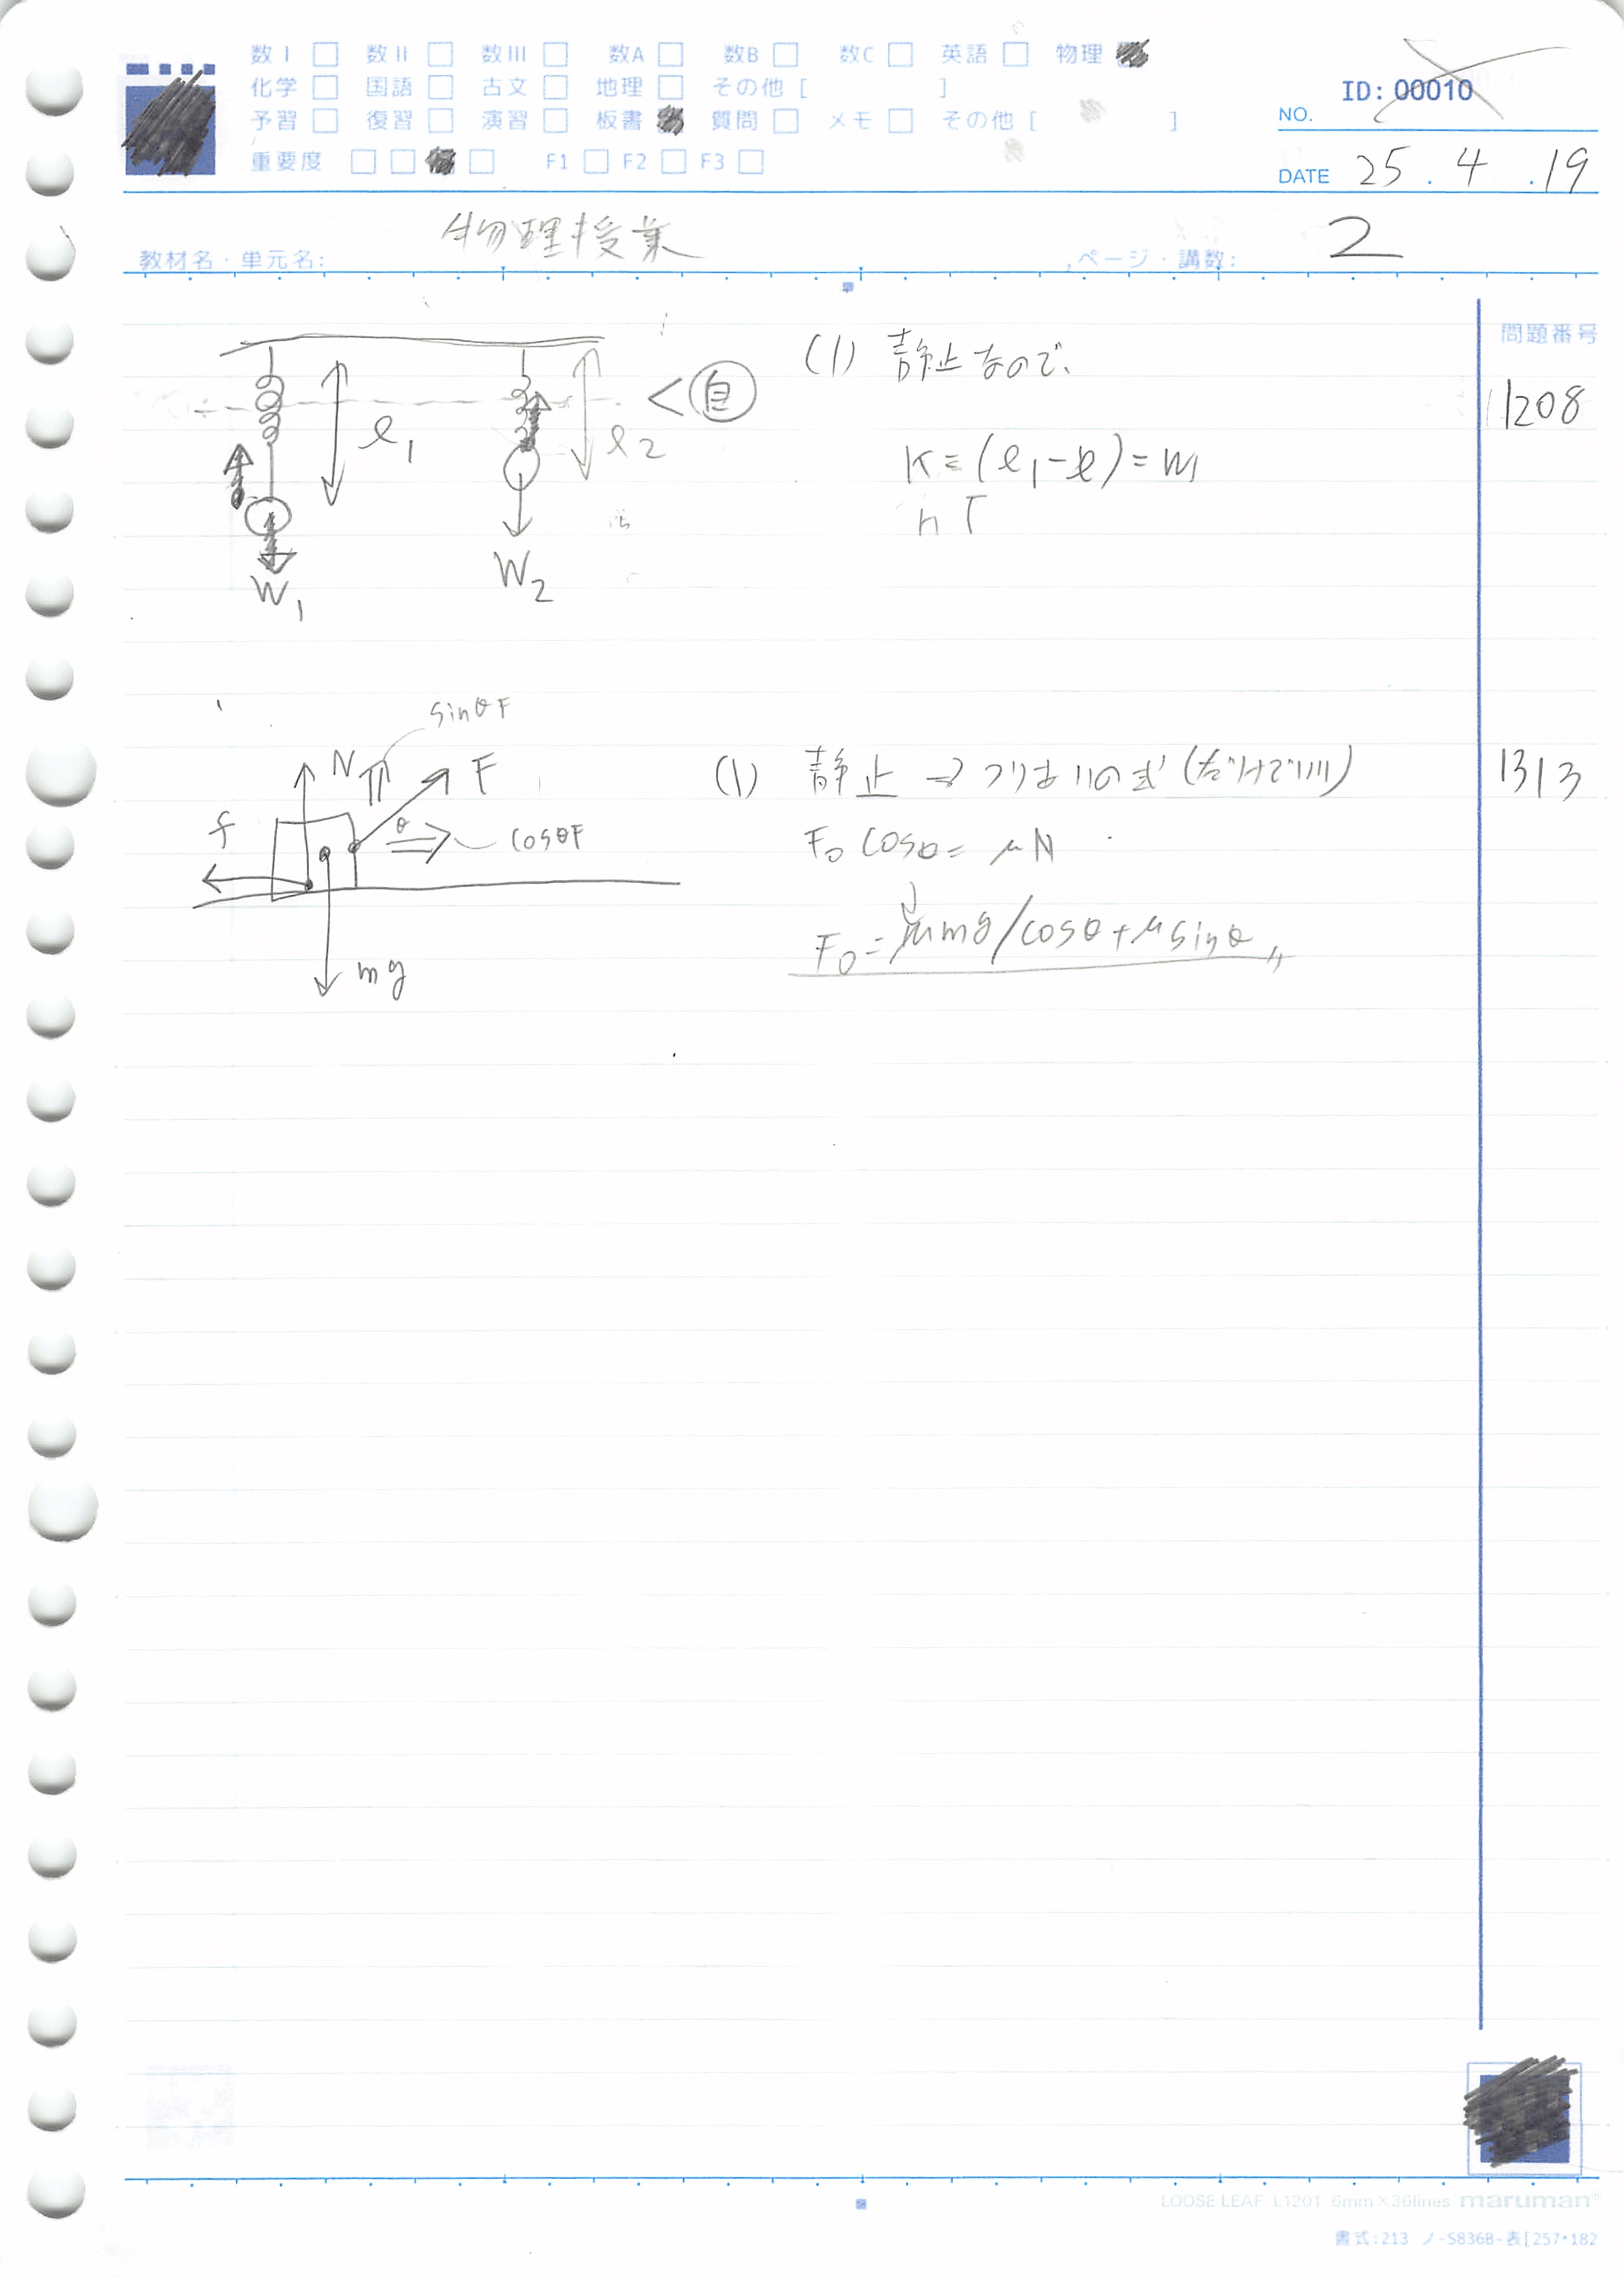 数I 数II 数III 数A 数B 数C 英語 物理
化学 国語 古文 地理 その他 [ ]
予習 復習 演習 板書 質問 メモ その他 [ ]
重要度 F1 F2 F3
ID: 00010
NO.
DATE 25 . 4 . 19
教材名・単元名: 物理授業
ページ・講数: 2
問題番号
1208
ℓ1
ℓ2
<自
W1
W2
(1) 静止なので、
K = (ℓ1-ℓ) = W1
1313
sinθF
N
F
f
θ
cosθF
mg
(1) 静止 ⇒ つりあいの式
F0 cosθ = μN
F0 = μmg/cosθ+μsinθ
LOOSE LEAF L1201 6mm×36lines maruman
書式:213 ノ-S836B-表[257*182